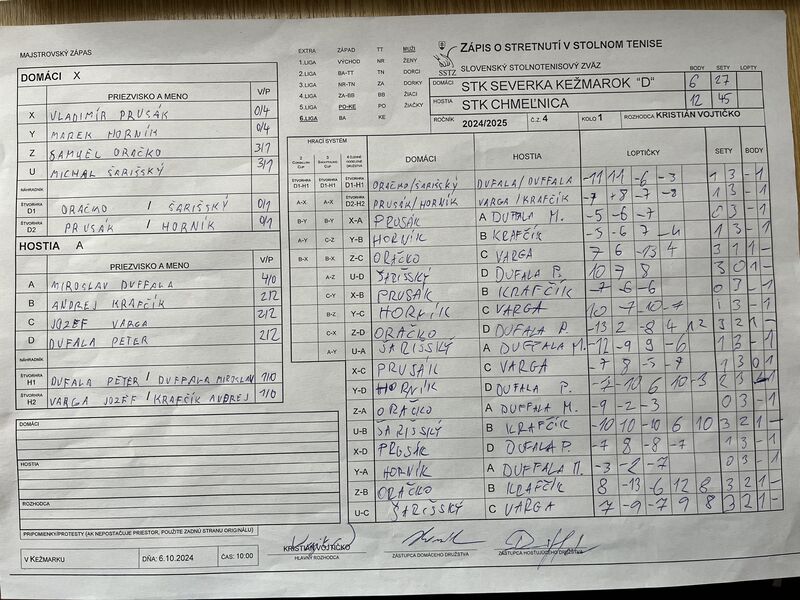 MAJSTROVSKÝ ZÁPAS
DOMÁCI X
PRIEZVISKO A MENO V/P
X VLADIMÍR PRUSÁK 0/4
Y MAREK HORNÍK 0/4
Z SAMUEL ORAČKO 3/1
U MICHAL ŠARIŠSKÝ 3/1
NÁHRADNÍK
ŠTVORHRA D1 ORAČKO / ŠARIŠSKÝ 0/1
ŠTVORHRA D2 PRUSÁK / HORNÍK 0/1
HOSTIA A
PRIEZVISKO A MENO V/P
A MIROSLAV DUFFALA 4/0
B ANDREJ KRAFČÍK 2/2
C JOZEF VARGA 2/2
D DUFALA PETER 2/2
NÁHRADNÍK
ŠTVORHRA H1 DUFALA PETER / DUFFALA MIROSLAV 1/0
ŠTVORHRA H2 VARGA JOZEF / KRAFČÍK ANDREJ 1/0
DOMÁCI
HOSTIA
ROZHODCA
PRIPOMIENKY/PROTESTY (AK NEPOSTAČUJE PRIESTOR, POUŽITE ZADNÚ STRANU ORIGINÁLU)
V KEŽMARKU DŇA: 6.10.2024 ČAS: 10:00
EXTRA ZÁPAD TT MUŽI
1.LIGA VÝCHOD NR ŽENY
2.LIGA BA-TT TN DORCI
3.LIGA NR-TN ZA DORKY
4.LIGA ZA-BB BB ŽIACI
5.LIGA PO-KE PO ŽIAČKY
6.LIGA BA KE
SSTZ
ZÁPIS O STRETNUTÍ V STOLNOM TENISE
SLOVENSKÝ STOLNOTENISOVÝ ZVÄZ
BODY SETY LOPTY
DOMÁCI STK SEVERKA KEŽMAROK "D" 6 27
HOSTIA STK CHMEĽNICA 12 45
ROČNÍK 2024/2025 Č.Z. 4 KOLO 1 ROZHODCA KRISTIÁN VOJTIČKO
HRACÍ SYSTÉM
DOMÁCI HOSTIA LOPTIČKY SETY BODY
ŠTVORHRA D1-H1 ŠTVORHRA D1-H1 ŠTVORHRA D1-H1 ORAČKO/ŠARIŠSKÝ DUFALA/DUFFALA -11 11 -6 -3 1 3 - 1
A-X A-X ŠTVORHRA D2-H2 PRUSÁK/HORNÍK VARGA / KRAFČÍK -7 +8 -7 -8 1 3 - 1
B-Y B-Y X-A PRUSÁK A DUFFALA M. -5 -6 -7 0 3 - 1
A-Y C-Z Y-B HORNÍK B KRAFČÍK -5 -6 7 -4 1 3 - 1
B-X B-X Z-C ORAČKO C VARGA 7 6 -13 4 3 1 1 -
A-Z U-D ŠARIŠSKÝ D DUFALA P. 10 7 8 3 0 1 -
C-Y X-B PRUSÁK B KRAFČÍK -7 -6 -6 0 3 - 1
B-Z Y-C HORNÍK C VARGA 10 -7 -10 -7 1 3 - 1
C-X Z-D ORAČKO D DUFALA P. -13 2 -8 4 12 3 2 1 -
A-Y U-A ŠARIŠSKÝ A DUFFALA M. -12 -9 9 -6 1 3 - 1
X-C PRUSÁK C VARGA -7 8 -5 -7 1 3 0 1
Y-D HORNÍK D DUFALA P. -10 6 10 -3 2 3 1
Z-A ORAČKO A DUFFALA M. -9 -2 -3 0 3 - 1
U-B ŠARIŠSKÝ B KRAFČÍK -10 10 -10 6 10 3 2 1 -
X-D PRUSÁK D DUFALA P. -7 8 -8 -7 1 3 - 1
Y-A HORNÍK A DUFFALA M. -3 -2 -7 0 3 - 1
Z-B ORAČKO B KRAFČÍK 8 -13 -6 12 8 3 2 1 -
U-C ŠARIŠSKÝ C VARGA 7 -9 -7 9 8 3 2 1 -
KRISTIÁN VOJTIČKO
HLAVNÝ ROZHODCA ZÁSTUPCA DOMÁCEHO DRUŽSTVA ZÁSTUPCA HOSŤUJÚCEHO DRUŽSTVA